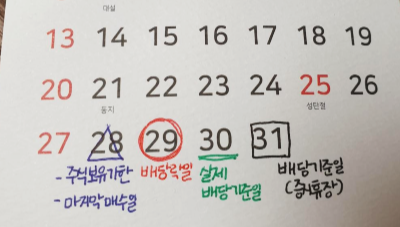 대설
13 14 15 16 17 18 19
20 21 22 23 24 25 26
동지 성탄절
27 28 29 30 31
- 주식보유기한 배당락일 실제 배당기준일
- 마지막매수일 배당기준일 (증시휴장)